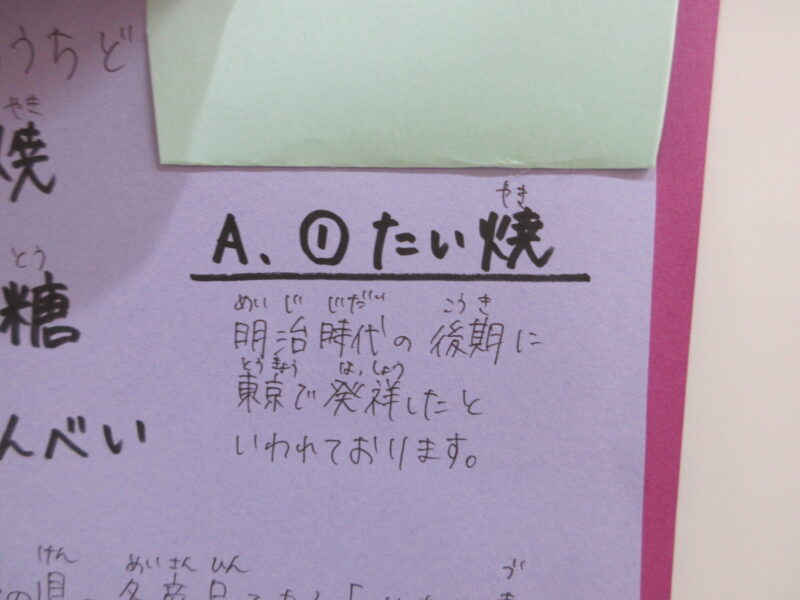 うちど
やき
焼
とう
糖
んべい
やき
A、① たい焼
めいじ じだい こうき
明治時代の後期に
とうきょう はっしょう
東京で発祥したと
いわれております。
けん めいさんひん づ
の県の名産品である「